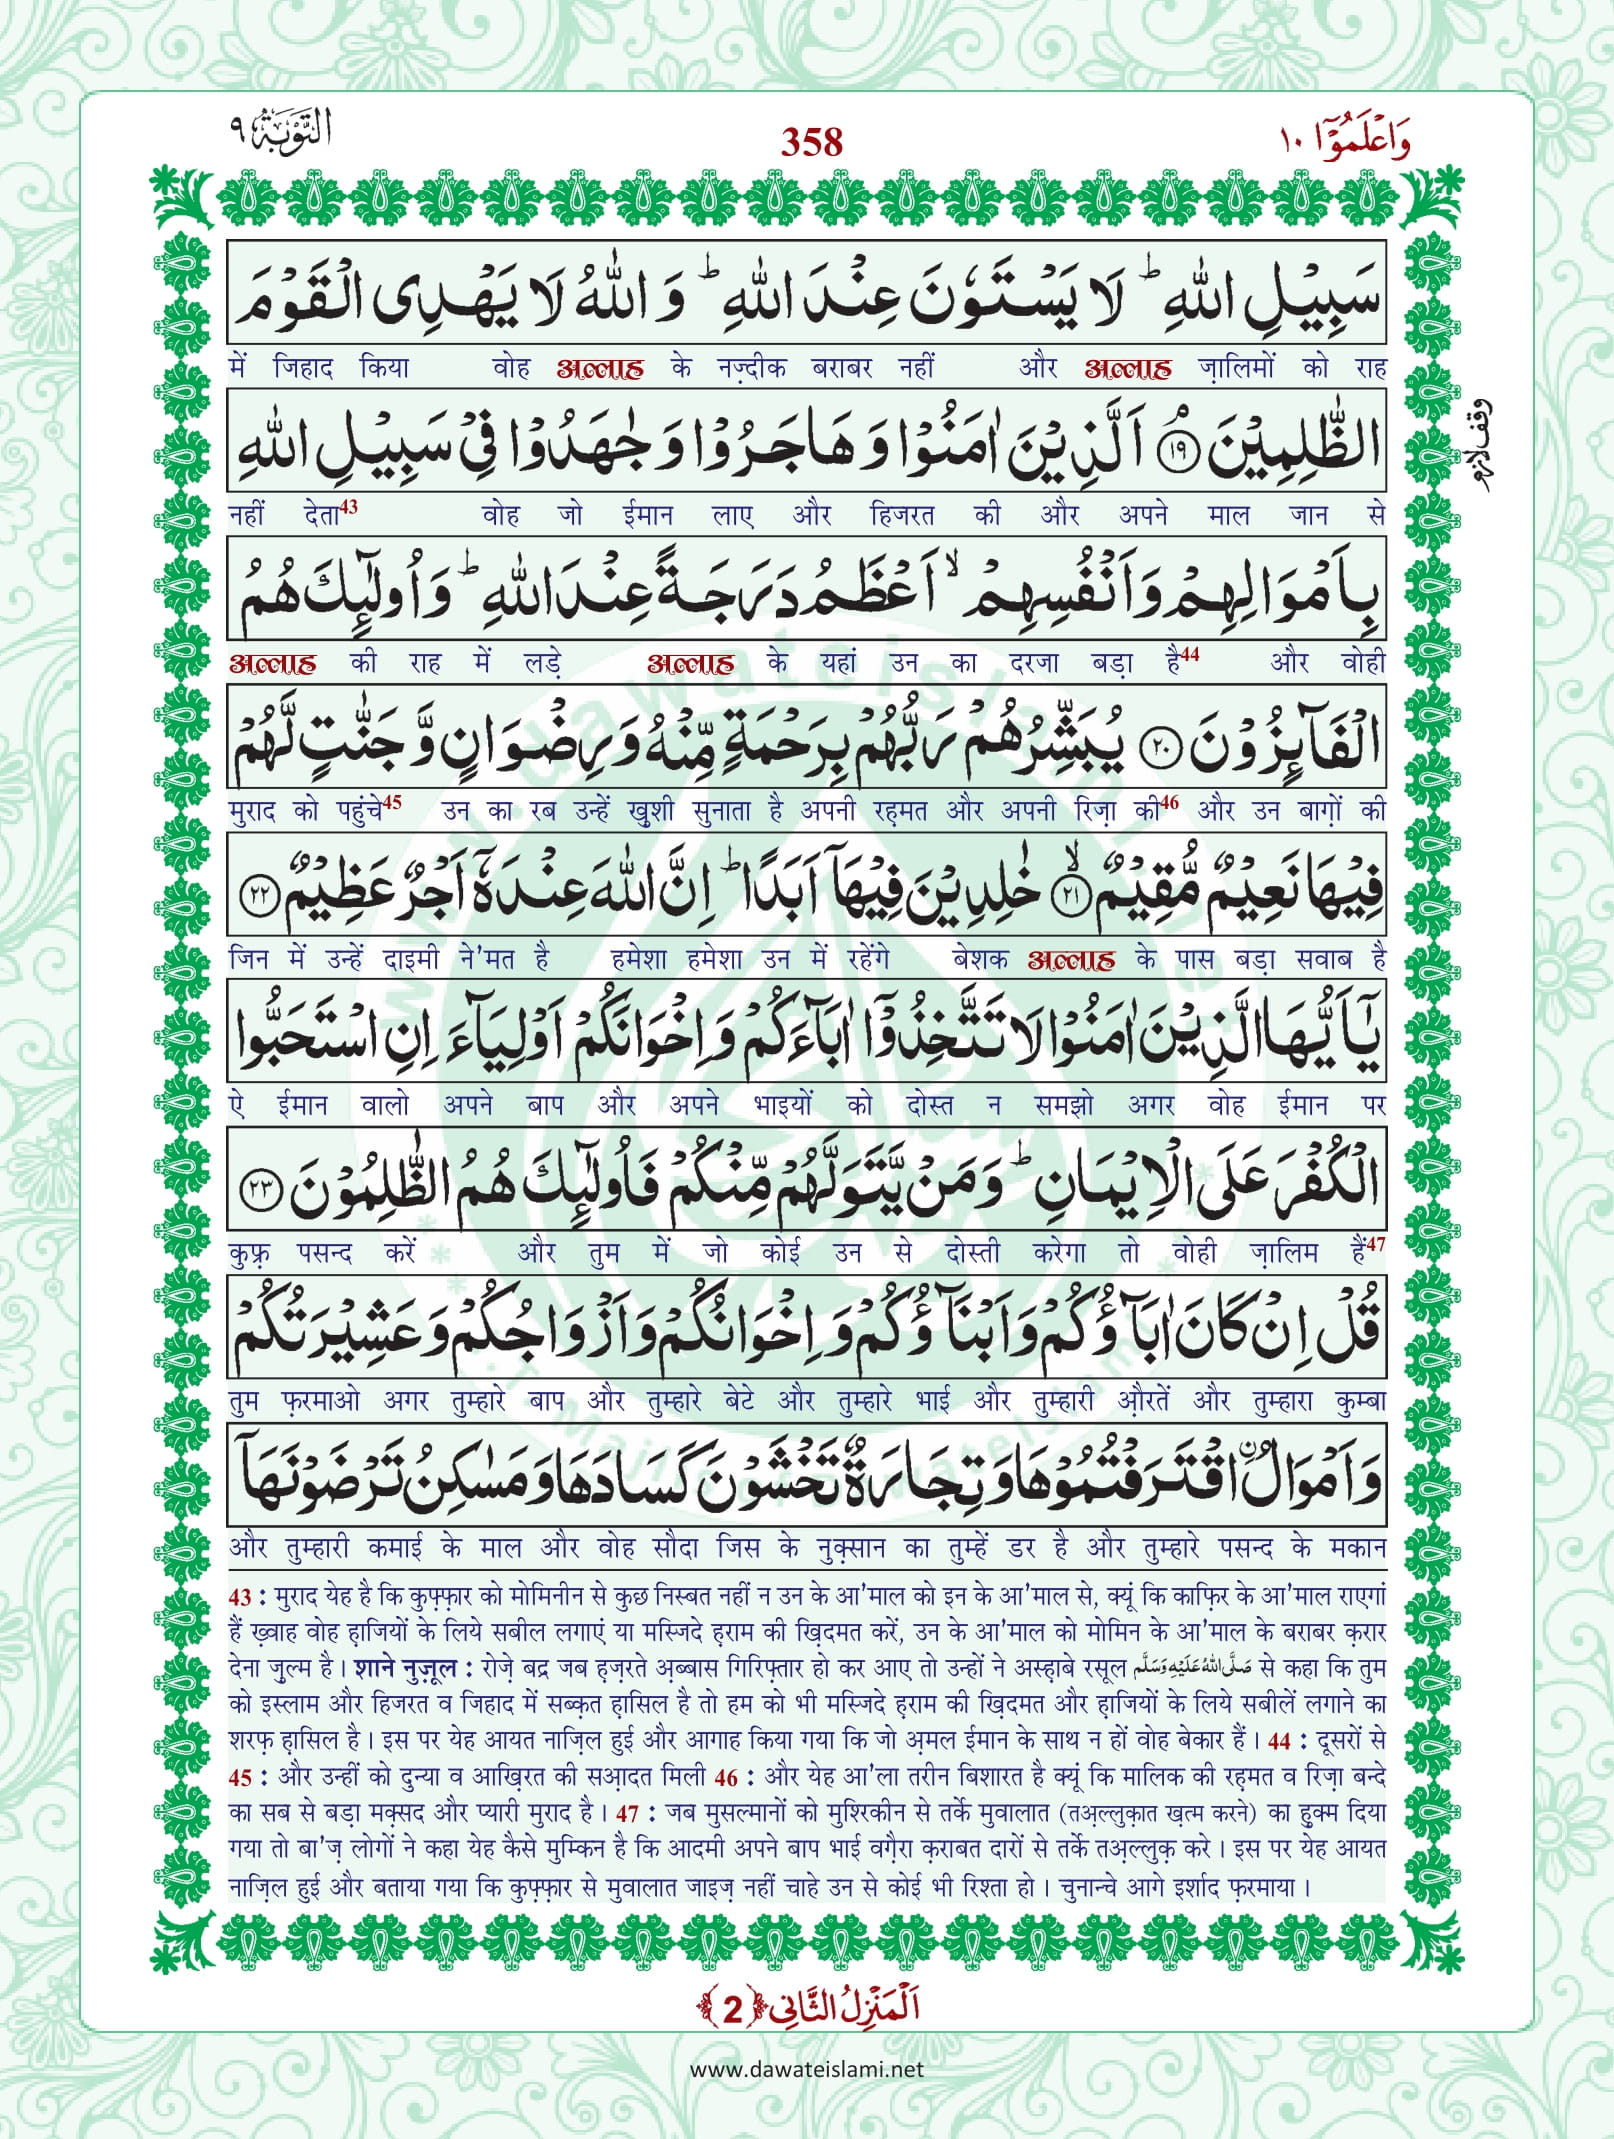 وَاعْلَمُوْٓا ١٠
358
التَّوْبَة ٩
سَبِیْلِ اللّٰهِ ؕ لَا یَسْتَوٗنَ عِنْدَ اللّٰهِ ؕ وَ اللّٰهُ لَا یَهْدِی الْقَوْمَ
में जिहाद किया वोह अल्लाह के नज़्दीक बराबर नहीं और अल्लाह ज़ालिमों को राह
الظّٰلِمِیْنَ ۘ﴿۱۹﴾ اَلَّذِیْنَ اٰمَنُوْا وَ هَاجَرُوْا وَ جٰهَدُوْا فِیْ سَبِیْلِ اللّٰهِ
وقف لازم
नहीं देता43 वोह जो ईमान लाए और हिजरत की और अपने माल जान से
بِاَمْوَالِهِمْ وَ اَنْفُسِهِمْ ۙ اَعْظَمُ دَرَجَةً عِنْدَ اللّٰهِ ؕ وَ اُولٰٓىِٕكَ هُمُ
अल्लाह की राह में लड़े अल्लाह के यहां उन का दरजा बड़ा है44 और वोही
الْفَآىِٕزُوْنَ ﴿۲۰﴾ یُبَشِّرُهُمْ رَبُّهُمْ بِرَحْمَةٍ مِّنْهُ وَ رِضْوَانٍ وَّ جَنّٰتٍ لَّهُمْ
मुराद को पहुंचे45 उन का रब उन्हें ख़ुशी सुनाता है अपनी रह़मत और अपनी रिज़ा की46 और उन बाग़ों की
فِیْهَا نَعِیْمٌ مُّقِیْمٌ ۙ﴿۲۱﴾ خٰلِدِیْنَ فِیْهَاۤ اَبَدًا ؕ اِنَّ اللّٰهَ عِنْدَهٗۤ اَجْرٌ عَظِیْمٌ ﴿۲۲﴾
जिन में उन्हें दाइमी ने'मत है हमेशा हमेशा उन में रहेंगे बेशक अल्लाह के पास बड़ा सवाब है
یٰۤاَیُّهَا الَّذِیْنَ اٰمَنُوْا لَا تَتَّخِذُوْۤا اٰبَآءَكُمْ وَ اِخْوَانَكُمْ اَوْلِیَآءَ اِنِ اسْتَحَبُّوا
ऐ ईमान वालो अपने बाप और अपने भाइयों को दोस्त न समझो अगर वोह ईमान पर
الْكُفْرَ عَلَی الْاِیْمَانِ ؕ وَ مَنْ یَّتَوَلَّهُمْ مِّنْكُمْ فَاُولٰٓىِٕكَ هُمُ الظّٰلِمُوْنَ ﴿۲۳﴾
कुफ़्र पसन्द करें और तुम में जो कोई उन से दोस्ती करेगा तो वोही ज़ालिम हैं47
قُلْ اِنْ كَانَ اٰبَآؤُكُمْ وَ اَبْنَآؤُكُمْ وَ اِخْوَانُكُمْ وَ اَزْوَاجُكُمْ وَ عَشِیْرَتُكُمْ
तुम फ़रमाओ अगर तुम्हारे बाप और तुम्हारे बेटे और तुम्हारे भाई और तुम्हारी औ़रतें और तुम्हारा कुम्बा
وَ اَمْوَالُ اِ۟قْتَرَفْتُمُوْهَا وَ تِجَارَةٌ تَخْشَوْنَ كَسَادَهَا وَ مَسٰكِنُ تَرْضَوْنَهَاۤ
और तुम्हारी कमाई के माल और वोह सौदा जिस के नुक़्सान का तुम्हें डर है और तुम्हारे पसन्द के मकान
43 : मुराद येह है कि कुफ़्फ़ार को मोमिनीन से कुछ निस्बत नहीं न उन के आ'माल को इन के आ'माल से, क्यूं कि काफ़िर के आ'माल राएगां
हैं ख़्वाह वोह ह़ाजियों के लिये सबील लगाएं या मस्जिदे ह़राम की ख़िदमत करें, उन के आ'माल को मोमिन के आ'माल के बराबर क़रार
देना ज़ुल्म है। शाने नुज़ूल : रोज़े बद्र जब ह़ज़रते अ़ब्बास गिरिफ़्तार हो कर आए तो उन्हों ने अस्ह़ाबे रसूल صَلَّى اللهُ عَلَيْهِ وَسَلَّم से कहा कि तुम
को इस्लाम और हिजरत व जिहाद में सब्क़त ह़ासिल है तो हम को भी मस्जिदे ह़राम की ख़िदमत और ह़ाजियों के लिये सबीलें लगाने का
शरफ़ ह़ासिल है। इस पर येह आयत नाज़िल हुई और आगाह किया गया कि जो अ़मल ईमान के साथ न हों वोह बेकार हैं। 44 : दूसरों से
45 : और उन्हीं को दुन्या व आख़िरत की सआ़दत मिली 46 : और येह आ'ला तरीन बिशारत है क्यूं कि मालिक की रह़मत व रिज़ा बन्दे
का सब से बड़ा मक़्सद और प्यारी मुराद है। 47 : जब मुसल्मानों को मुश्रिकीन से तर्के मुवालात (तअ़ल्लुक़ात ख़त्म करने) का हुक्म दिया
गया तो बा'ज़ लोगों ने कहा येह कैसे मुम्किन है कि आदमी अपने बाप भाई वग़ैरा क़राबत दारों से तर्के तअ़ल्लुक़ करे। इस पर येह आयत
नाज़िल हुई और बताया गया कि कुफ़्फ़ार से मुवालात जाइज़ नहीं चाहे उन से कोई भी रिश्ता हो। चुनान्चे आगे इर्शाद फ़रमाया।
اَلْمَنْزِلُ الثَّانِی ﴿2﴾
www.dawateislami.net